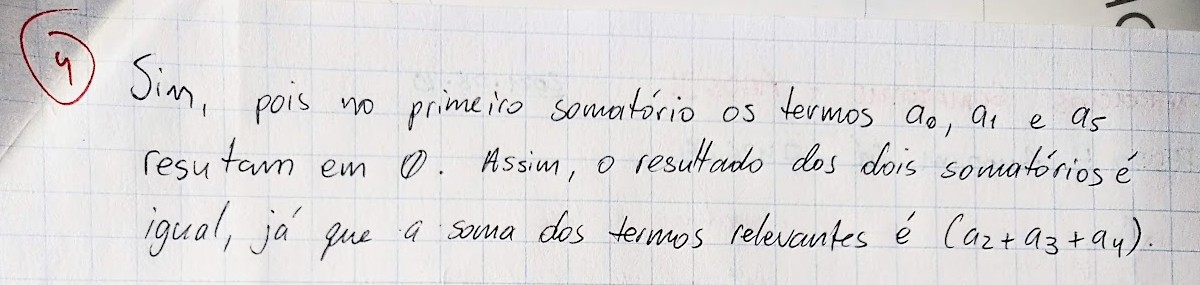 4
Sim, pois no primeiro somatório os termos a₀, a₁ e a₅
resutam em 0. Assim, o resultado dos dois somatórios é
igual, já que a soma dos termos relevantes é (a₂+a₃+a₄).